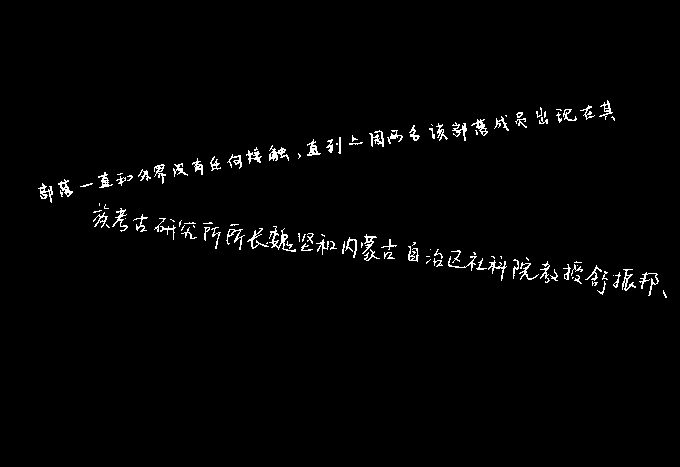 部落一直和外界没有任何接触,直到上周两名该部落成员出现在其
族考古研究所所长魏坚和内蒙古自治区社科院教授舒振邦、